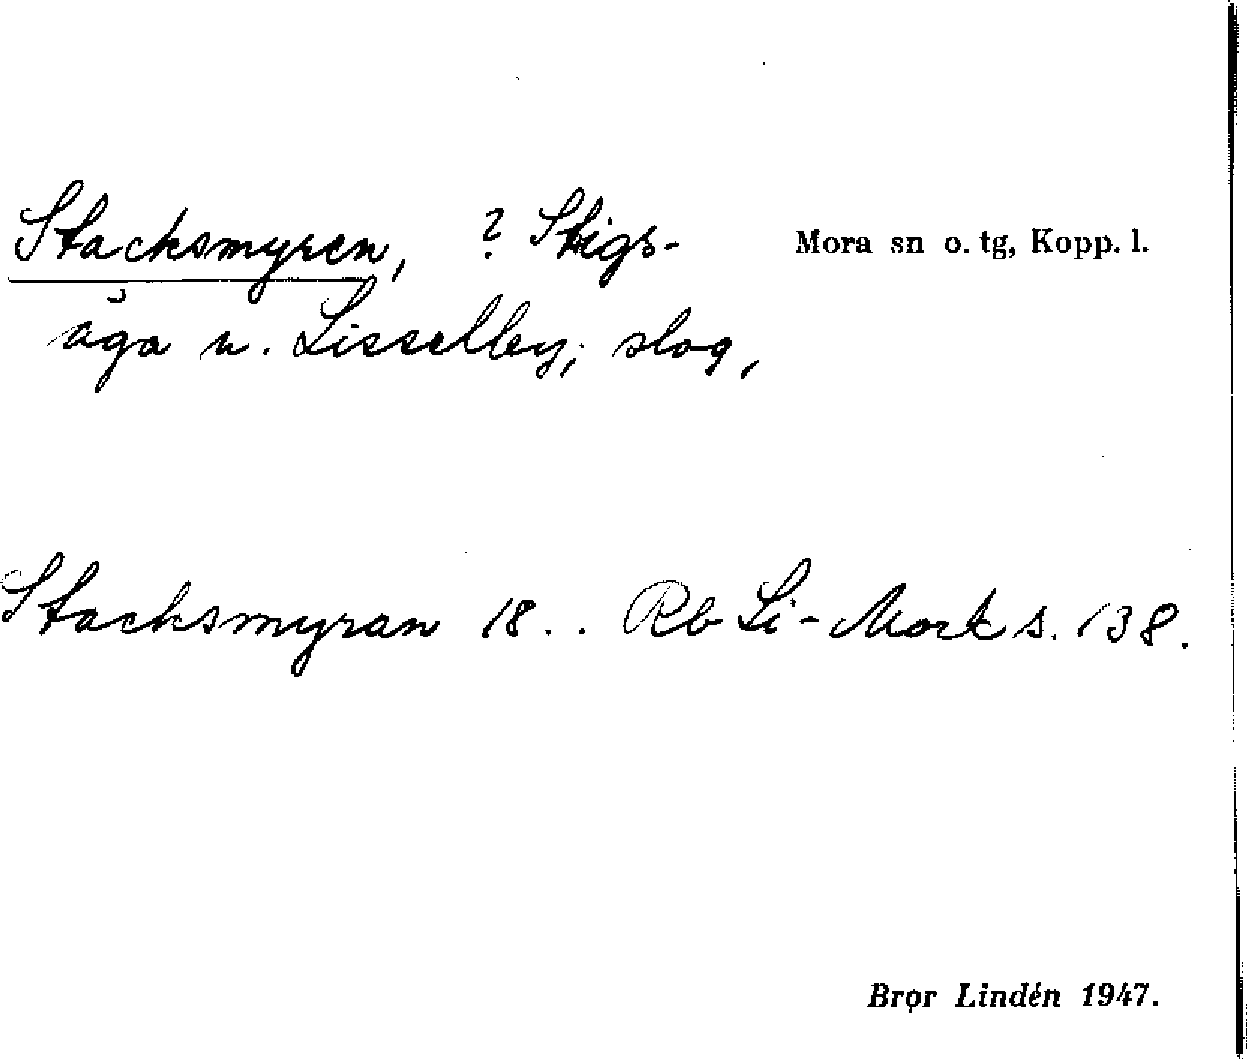 Stacksmyren, ? Stigs- Mora sn o. tg, Kopp. l.
åga u. Lisselby; slog,
Stacksmyran 18.. Rb Li-Mork s. 138.
Bror Lindén 1947.